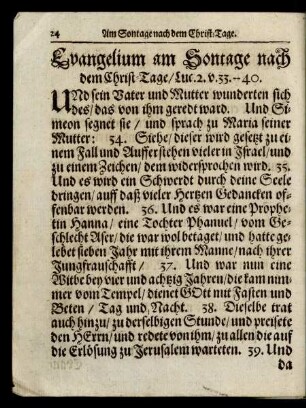 24 Am Sontage nach dem Christ-Tage.
Evangelium am Sontage nach
dem Christ-Tage/ Luc. 2. v. 33.--40.
UNd sein Vater und Mutter wunderten sich
des/ das von ihm geredt ward. Und Si-
meon segnet sie/ und sprach zu Maria seiner
Mutter: 34. Siehe/ dieser wird gesetzt zu ei-
nem Fall und Aufferstehen vieler in Israel/ und
zu einem Zeichen/ dem widersprochen wird. 35.
Und es wird ein Schwerdt durch deine Seele
dringen/ auff daß vieler Hertzen Gedancken of-
fenbar werden. 36. Und es war eine Prophe-
tin Hanna/ eine Tochter Phanuel/ vom Ge-
schlecht Aser/ die war wol betaget/ und hatte ge-
lebet sieben Jahr mit ihrem Manne/ nach ihrer
Jungfrauschafft/ 37. Und war nun eine
Witbe bey vier und achtzig Jahren/ die kam nim-
mer vom Tempel/ dienet GOtt mit Fasten und
Beten/ Tag und Nacht. 38. Dieselbe trat
auch hinzu/ zu derselbigen Stunde/ und preisete
den HErrn/ und redete von ihm/ zu allen die auf
die Erlösung zu Jerusalem warteten. 39. Und
da